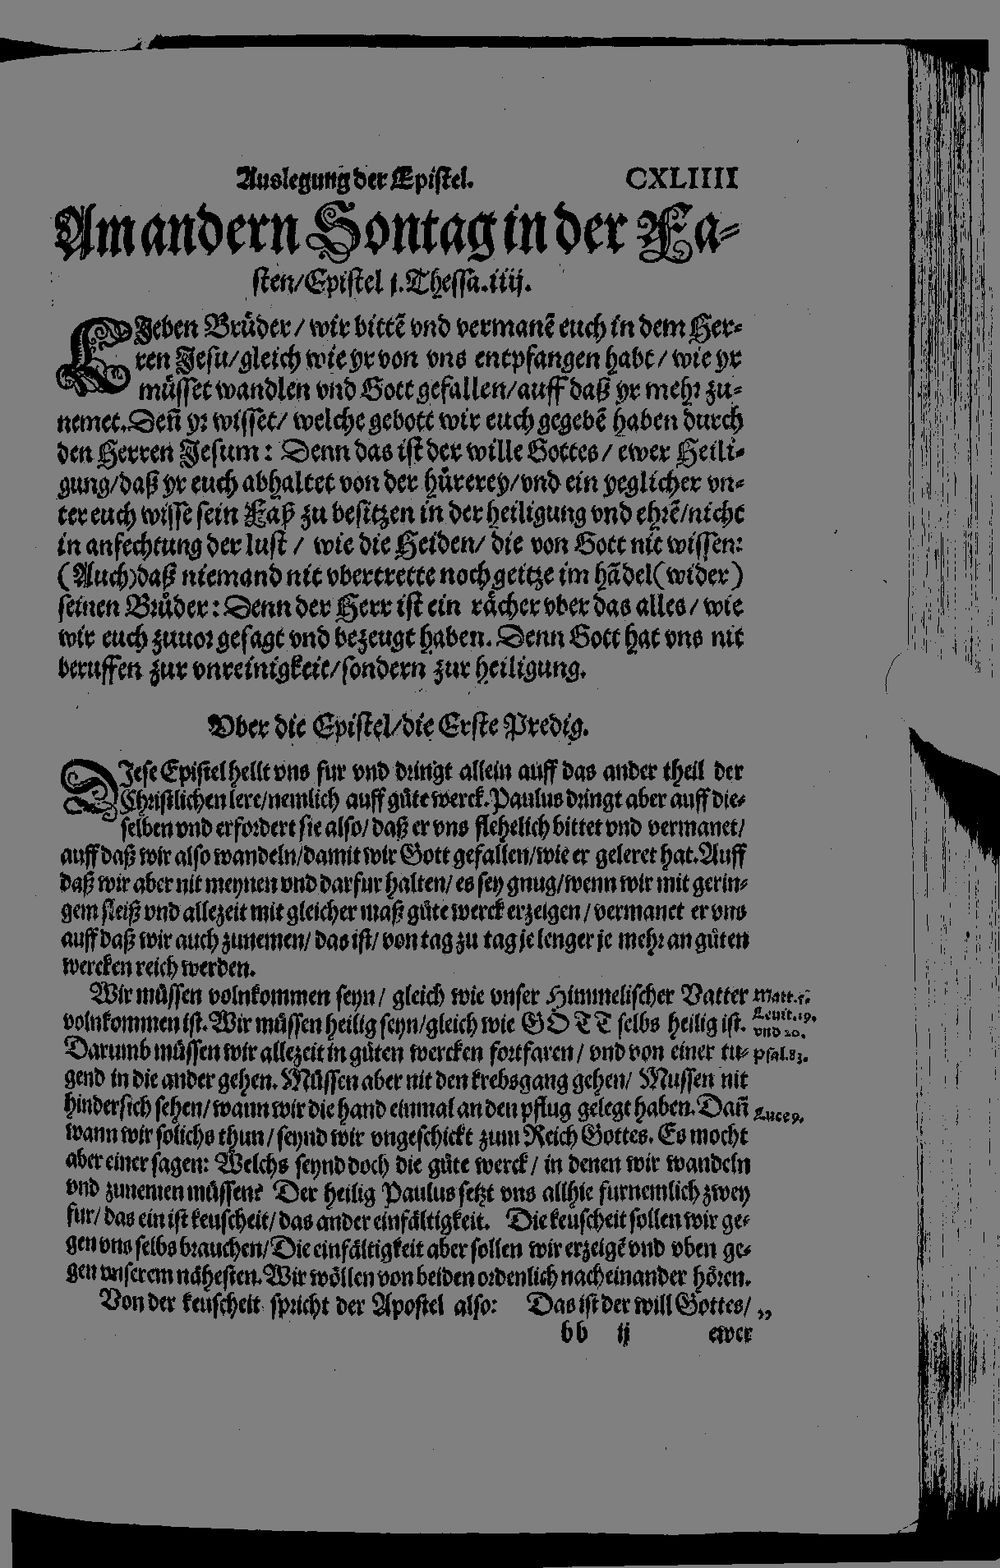 Auslegung der Epistel. CXLIIII
Am andern Sontag in der Fa-
sten/Epistel j.Thessa.iiij.
LJeben Brüder/ wir bittē vnd vermanē euch in dem Her-
ren Jesu/gleich wie yr von vns entpfangen habt/ wie yr
müsset wandlen vnd Gott gefallen/auff daß yr mehr zu-
nemet. Deñ yr wisset/ welche gebott wir euch gegebē haben durch
den Herren Jesum: Denn das ist der wille Gottes/ ewer Heili-
gung/daß yr euch abhaltet von der hürerey/vnd ein yeglicher vn-
ter euch wisse sein Faß zu besitzen in der heiligung vnd ehrē/nicht
in anfechtung der lust / wie die Heiden/ die von Gott nit wissen:
(Auch)daß niemand nit vbertrette noch geitze im hādel(wider)
seinen Brüder: Denn der Herr ist ein rächer vber das alles/ wie
wir euch zuuor gesagt vnd bezeugt haben. Denn Gott hat vns nit
beruffen zur vnreinigkeit/sondern zur heiligung.
Vber die Epistel/die Erste Predig.
DJese Epistel hellt vns fur vnd dringt allein auff das ander theil der
Christlichen lere/nemlich auff güte werck. Paulus dringt aber auff die-
selben vnd erfordert sie also/ daß er vns flehelich bittet vnd vermanet/
auff daß wir also wandeln/damit wir Gott gefallen/wie er geleret hat. Auff
daß wir aber nit meynen vnd darfur halten/ es sey gnug/wenn wir mit gerin-
gem fleiß vnd allezeit mit gleicher maß güte werck erzeigen/ vermanet er vns
auff daß wir auch zunemen/ das ist/ von tag zu tag je lenger je mehr an güten
wercken reich werden.
Wir müssen volnkommen seyn/ gleich wie vnser Himmelischer Vatter Matt.5.
volnkommen ist. Wir müssen heilig seyn/gleich wie GOTT selbs heilig ist. Leuit.19.
vnd 20.
Darumb müssen wir allezeit in güten wercken fortfaren/ vnd von einer tu- Psal.83.
gend in die ander gehen. Müssen aber nit den krebsgang gehen/ Mussen nit
hindersich sehen/ wann wir die hand einmal an den pflug gelegt haben. Dañ Luce 9.
wann wir solichs thun/ seynd wir vngeschickt zum Reich Gottes. Es mocht
aber einer sagen: Welchs seynd doch die güte werck/ in denen wir wandeln
vnd zunemen müssen? Der heilig Paulus setzt vns allhie furnemlich zwey
fur/ das ein ist keuscheit/ das ander einfältigkeit. Die keuscheit sollen wir ge-
gen vns selbs brauchen/ Die einfältigkeit aber sollen wir erzeigē vnd vben ge-
gen vnserem nähesten. Wir wöllen von beiden ordenlich nach einander hören.
Von der keuscheit spricht der Apostel also: Das ist der will Gottes/ „
bb ij ewer